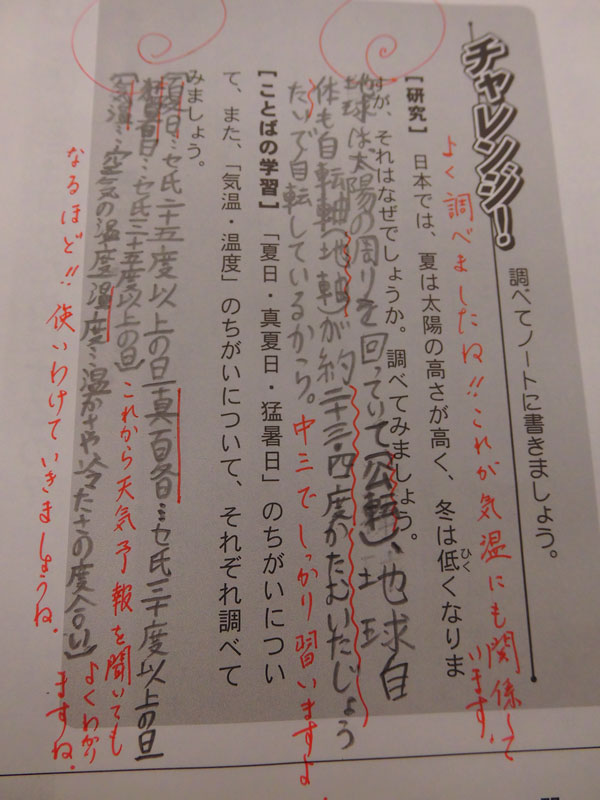 チャレンジ!
調べてノートに書きましょう。
よく調べましたね!!これが気温にも関係して
います。
[研究] 日本では、夏は太陽の高さが高く、冬は低くなりま
ひく
すが、それはなぜでしょうか。調べてみましょう。
地球は太陽の周りを回っていて(公転)、地球自
体も自転軸(地軸)が約二十三・四度かたむいたじょう
たいで自転しているから。
中三でしっかり習いますよ
[ことばの学習] 「夏日・真夏日・猛暑日」のちがいについ
て、また、「気温・温度」のちがいについて、それぞれ調べて
みましょう。
[夏日…セ氏二十五度以上の日 真夏日…セ氏三十度以上の日
猛暑日…セ氏三十五度以上の日]
これから天気予報を聞いても
よくわかり
ますね。
[気温…空気の温度 温度…温かさや冷たさの度合い]
なるほど!!使いわけていきましょうね。